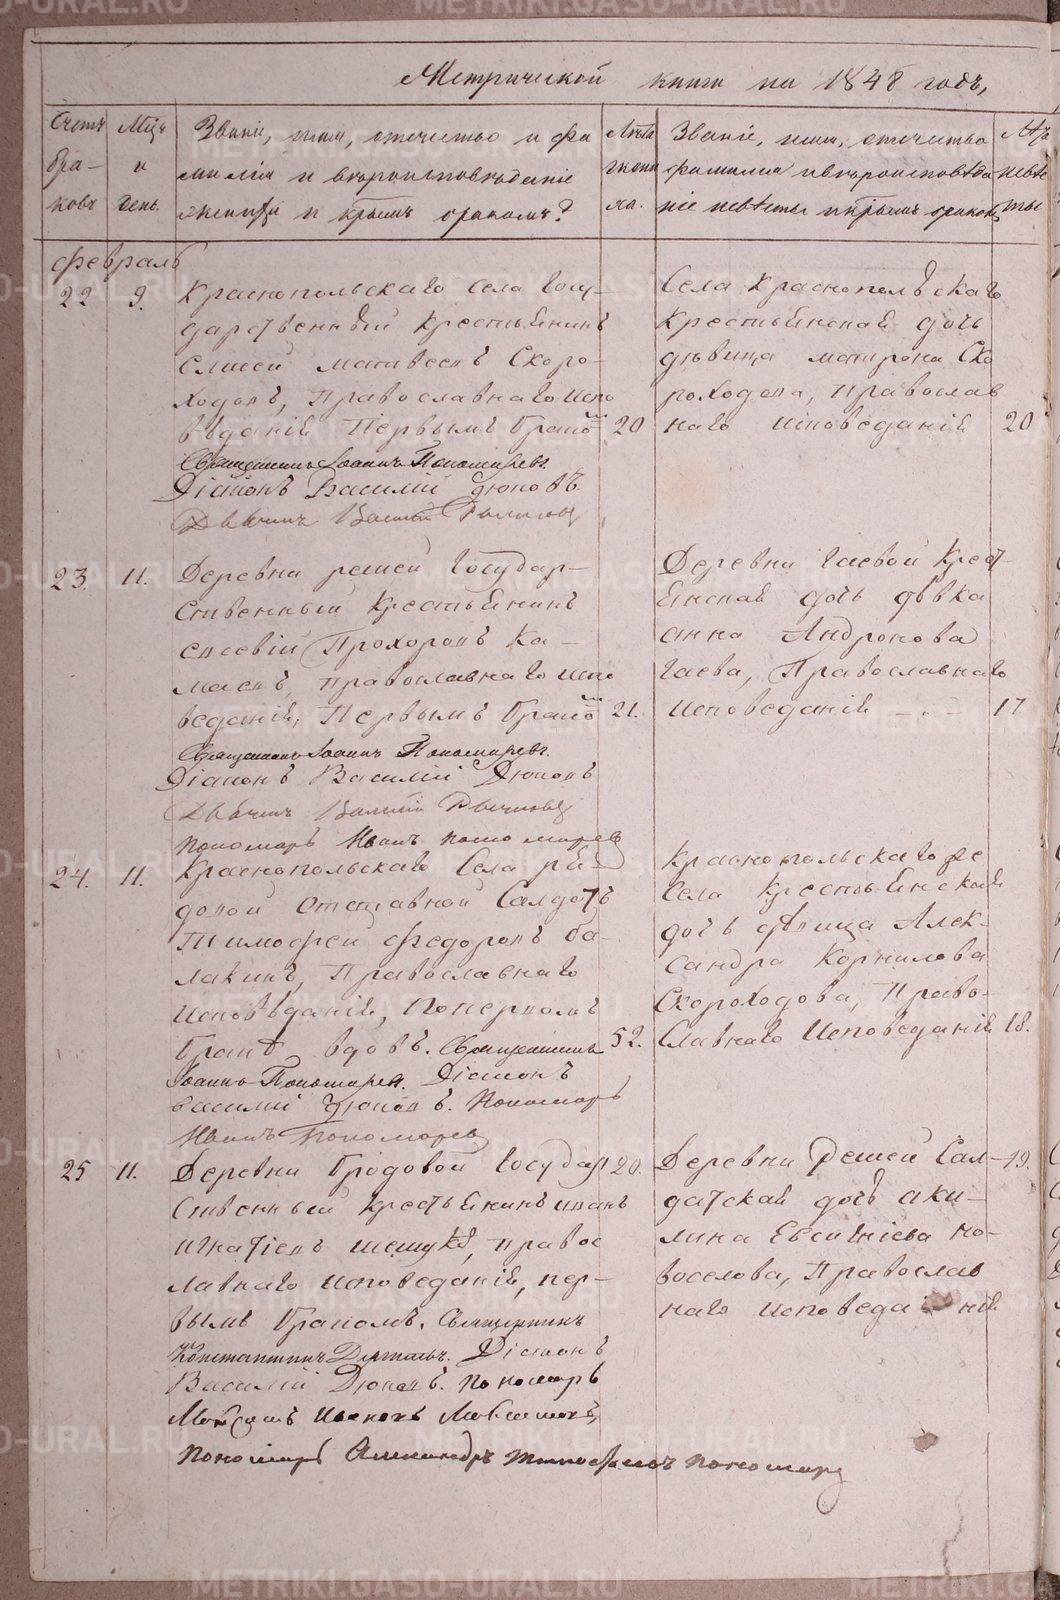 Метрической книги на 1848 годъ,
Счетъ браковъ
Мцъ и день.
Званіе, имя, отечество и фамилія и вѣроисповѣданіе жениха и крымъ бракомъ?
Лѣта жениха.
Званіе, имя, отечество фамилия и вѣроисповѣданіе невѣсты и крымъ бракомъ
невѣсты
февраль
22 9.
Краснопольскаго Села Госу-
дарственный Крестьянинъ
Матвеевъ Скоро-
ходовъ, Православнаго испо
вѣданія Первымъ Бракомъ 20
Священникъ Іоаннъ Пономаревъ.
Діаконъ Василій Дюковъ.
Дьячикъ Василій
Села Краснопольскаго
Крестьянская дочь
дѣвица матрона Ско
роходова, Православ
наго исповеданія 20
23. 11.
Деревни решей Государ-
ственный Крестьянинъ
Прохоровъ Ка-
маевъ, православнаго испо
веданія, Первымъ Бракомъ 21.
Священникъ Іоаннъ Пономаревъ.
Діаконъ Василій Дюковъ
Дьячикъ Василій
Пономарь Иванъ пономаревъ
Деревни Гаевой Крест
янская дочь дѣвка
анна Андронова
Гаева, Православнаго
исповеданія 17
24. 11.
Краснопольскаго Села ря-
довой Отставной Салдатъ
Тимофей Федоровъ ба-
лакинъ, Православнаго
исповѣданія, Поперьвомъ
Бракѣ вдовъ. Священникъ 52.
Іоаннъ Пономаревъ. Діаконъ
василій Дюковъ. Пономарь
Иванъ Пономаревъ
Краснопольскаго же
Села Крестьянская
дочь дѣвица Алек-
сандра Корнилова
Скороходова, Право-
славнаго Исповеданія 18.
25 11.
Деревни Бродовой Государ 20.
ственный крестьянинъ иванъ
игнатіевъ, правос
лавнаго исповеданія, пер-
вымъ Бракомъ. Священникъ
Константинъ
Діаконъ
Василій Дюковъ. пономарь
Иванъ
пономарь Александръ пономарь
Деревни Решей Сал- 19.
датская дочь аки-
лина Евсигніева но-
воселова, Православ
наго исповеданія
METRIKI.GASO-URAL.RU